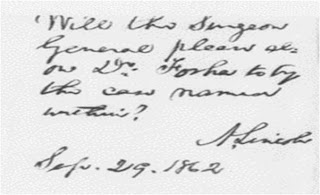 Will the Surgeon
General please al-
ow Dr. Forsha to try
the case named
within?
A. Lincoln
Sep. 29. 1862